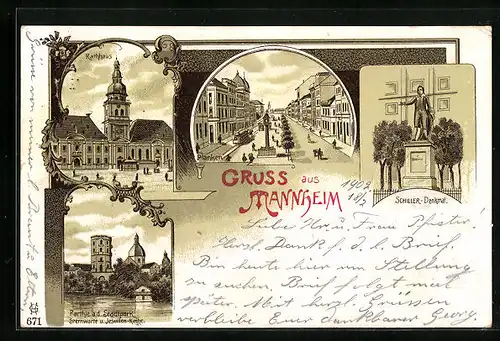 Rathhaus
Planken
GRUSS aus
MANNHEIM
SCHILLER-Denkmal.
1902
14/5
Liebe Hr. u. Frau Pfister!
Herzl. Dank f. d. l. Brief.
Bin heute hier um Stellung
zu suchen Brief folgt
später. Mit herzl. Grüssen
verbleibe Euer dankbarer Georg
Parthie a.d. Stadtpark
Sternwarte u. Jesuiten-Kirche.
671
Grüsse von meiner l.